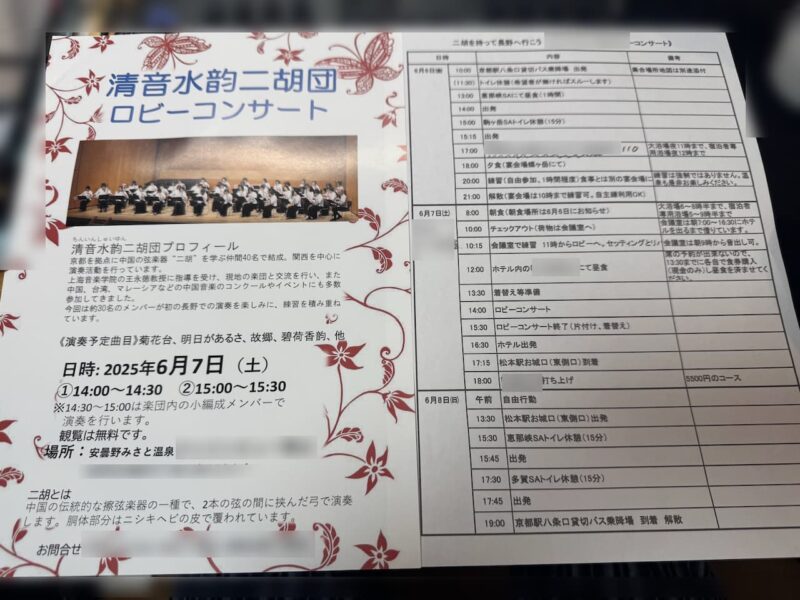 清音水韵二胡団
ロビーコンサート
ちんいんしぇいゆん
清音水韵二胡団プロフィール
京都を拠点に中国の弦楽器“二胡”を学ぶ仲間40名で結成、関西を中心に
演奏活動を行っています。
上海音楽学院の王永徳教授に指導を受け、現地の楽団と交流を行い、また
中国、台湾、マレーシアなどの中国音楽のコンクールやイベントにも多数
参加してきました。
今回は約30名のメンバーが初の長野での演奏を楽しみに、練習を積み重ね
ています。
《演奏予定曲目》菊花台、明日があるさ、故郷、碧荷香韵、他
日時: 2025年6月7日（土）
①14:00～14:30 ②15:00～15:30
※14:30～15:00は楽団内の小編成メンバーで
演奏を行います。
観覧は無料です。
場所：安曇野みさと温泉
二胡とは
中国の伝統的な擦弦楽器の一種で、2本の弦の間に挟んだ弓で演奏
します。胴体部分はニシキヘビの皮で覆われています。
お問合せ
二胡を持って長野へ行こう ーコンサート》
日時 内容 備考
6月6日(金) 10:00 京都駅八条口貸切バス乗降場 出発 集合場所地図は別途添付
(11:30) トイレ休憩（希望者が無ければスルーします）
13:00 恵那峡SAにて昼食（1時間）
14:00 出発
15:00 駒ヶ岳SAトイレ休憩（15分）
15:15 出発
17:00 110 大浴場夜11時まで、宿泊者専用浴場12時まで
18:00 夕食（宴会場蝶ヶ岳にて）
20:00 練習（自由参加、1時間程度）食事とは別の宴会場に 練習は強制ではありません。温泉も是非お楽しみください。
21:00 解散（宴会場は10時まで練習可。自主練利用OK）
6月7日(土) 8:00 朝食（朝食場所は6月6日にお知らせ） 大浴場6～8時半まで、宿泊者専用浴場5～9時半まで
10:00 チェックアウト（荷物は会議室へ） 会議室は7:00～16:30にホテルを出るまで借ています。
10:15 会議室で練習 11時からロビーへ。セッティングとリハ 会議室は朝9時から音出し可。
12:00 ホテル内の にて昼食 席の予約が出来ないので、12:30までに各自で食券購入（現金のみ）し昼食を済ませてください。
13:30 着替え等準備
14:00 ロビーコンサート
15:30 ロビーコンサート終了（片付け、着替え）
16:30 ホテル出発
17:15 松本駅お城口（東側口）到着
18:00 打ち上げ 5500円のコース
6月8日(日) 午前 自由行動
13:30 松本駅お城口（東側口）出発
15:30 恵那峡SAトイレ休憩（15分）
15:45 出発
17:30 多賀SAトイレ休憩（15分）
17:45 出発
19:00 京都駅八条口貸切バス乗降場 到着 解散